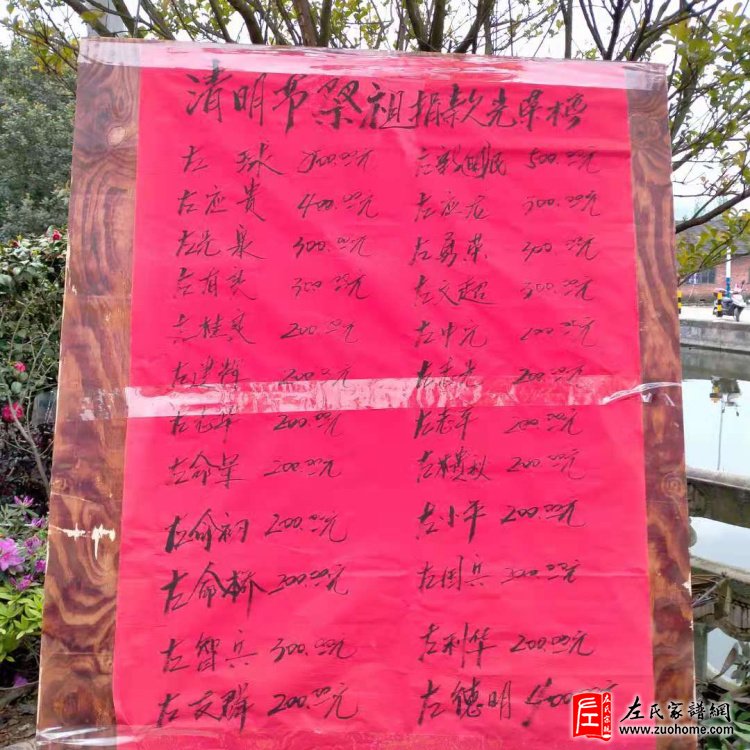 清明节祭祖捐款光荣榜
左球 元 左 500.00元
左应贵 400.00元 左应龙 300.00元
左光泉 300.00元 左勇荣 300.00元
左有 300.00元 左文超 300.00元
左桂 200.00元 左中元 元
左建辉 200.00元 左 200.00元
左 200.00元 左老年 200.00元
左命 200.00元 左横秋 200.00元
左命初 200.00元 左小平 200.00元
左命桥 200.00元 左国兵 300.00元
左智兵 300.00元 左利华 200.00元
左文群 200.00元 左德明
左氏家譜網
www.zuohome.com